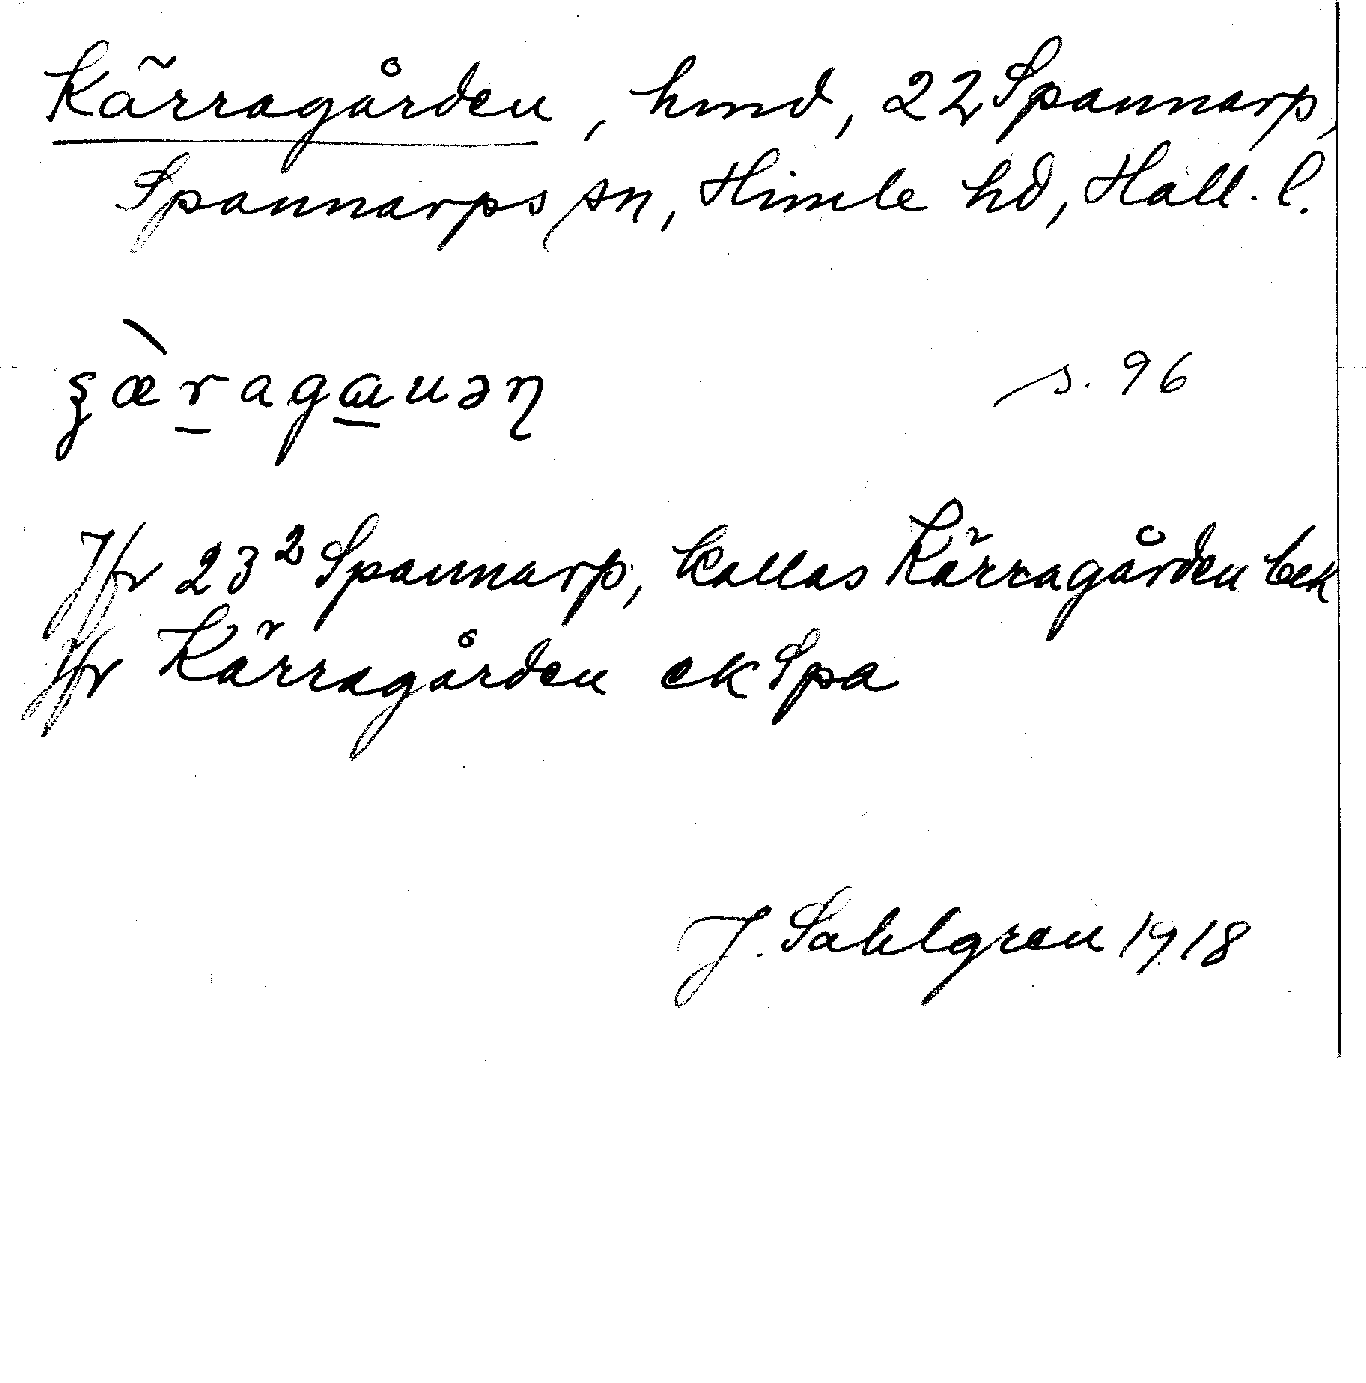 Kärragården, hmd, 22 Spannarp,
Spannarps sn, Himle hd, Hall. l.
s. 96
Jfr 23² Spannarp, kallas Kärragården bek
Jfr Kärragården ek Spa
J. Sahlgren 1918